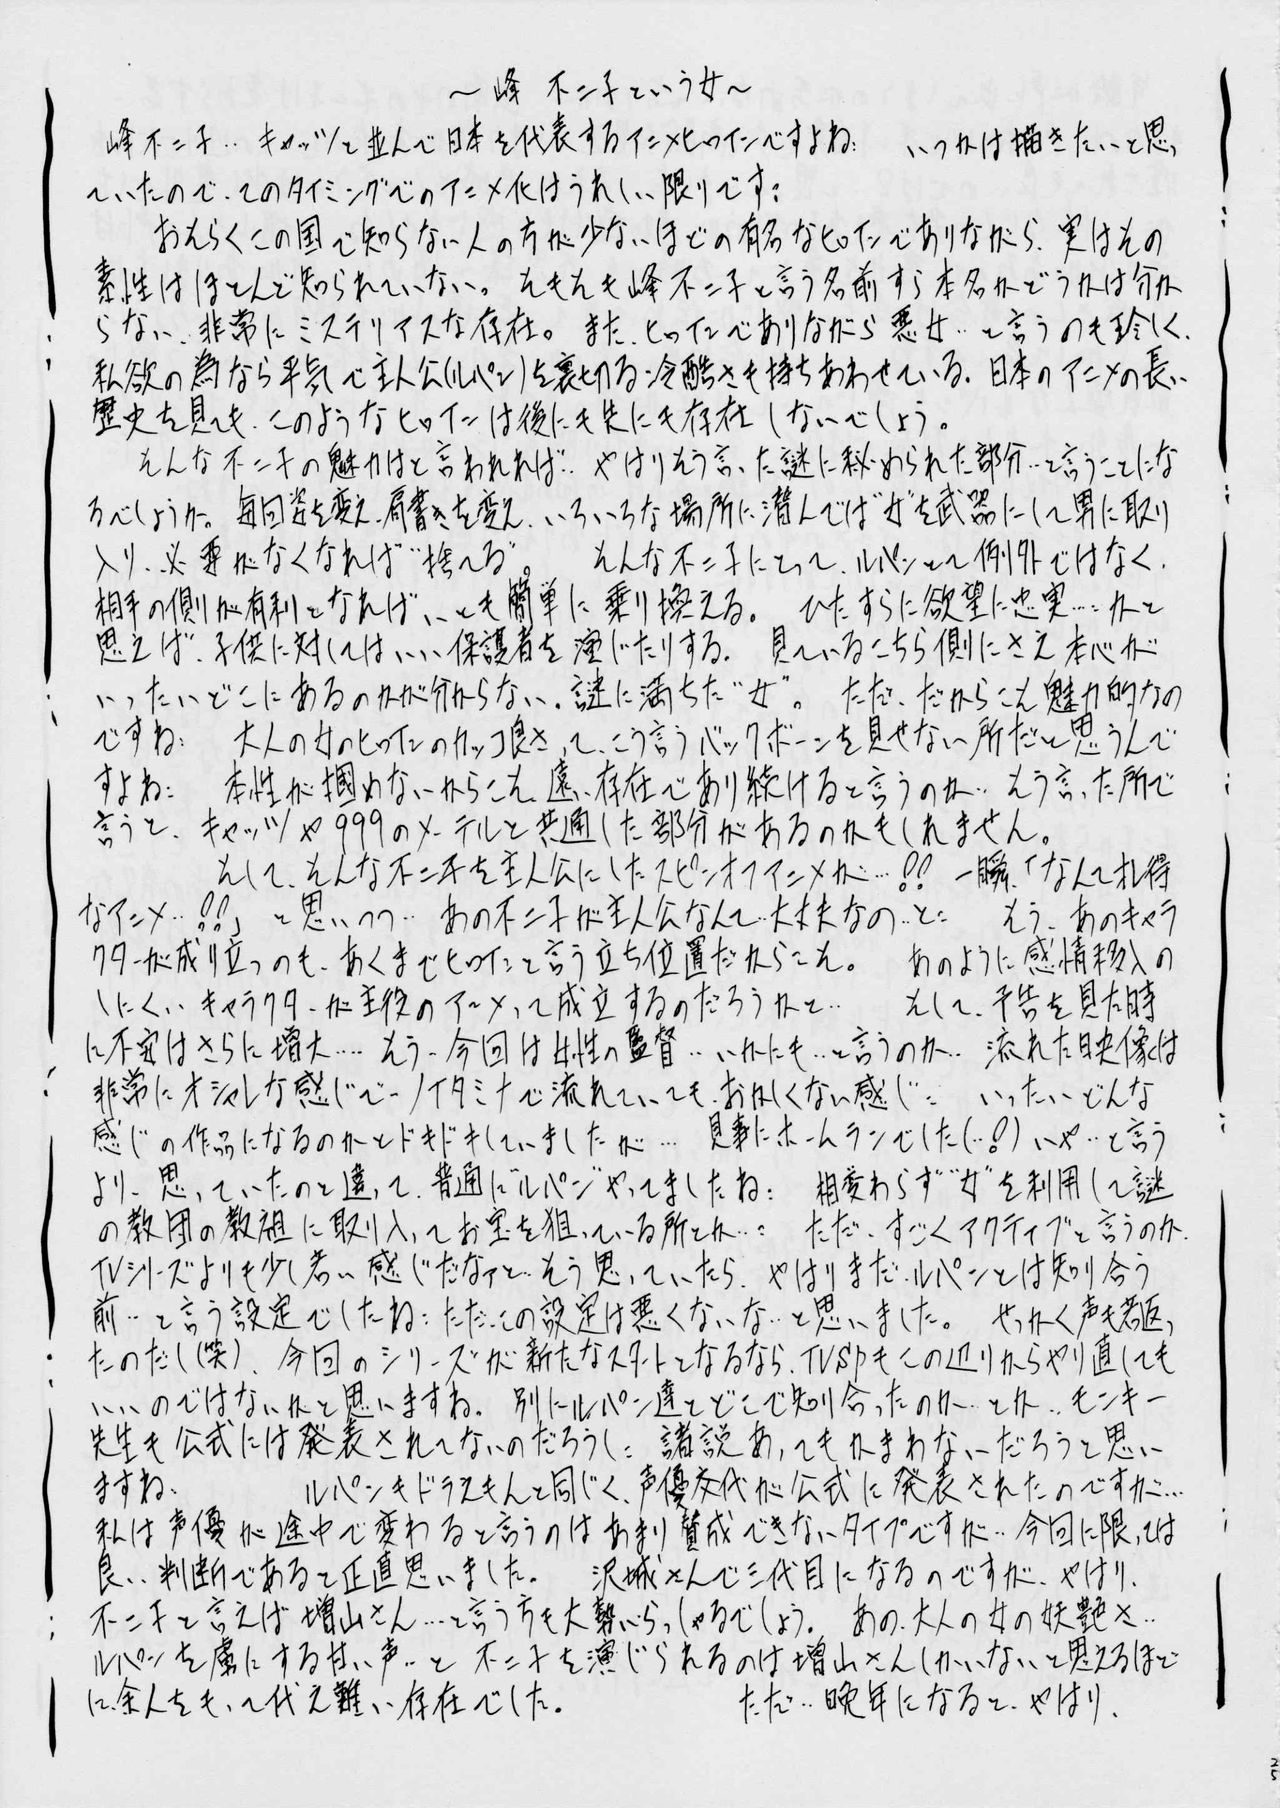 ～峰 不二子という女～
峰不二子‥キャッツと並んで日本を代表するアニメヒロインですよね； いつかは描きたいと思っ
ていたので、このタイミングでのアニメ化はうれしい限りです；
おそらくこの国で知らない人の方が少ないほどの有名なヒロインでありながら、実はその
素性はほとんど知られていない。そもそも峰不二子と言う名前すら本名かどうかは分か
らない、非常にミステリアスな存在。また、ヒロインでありながら悪女‥と言うのも珍しく、
私欲の為なら平気で主人公(ルパン)を裏切る冷酷さも持ちあわせている。日本のアニメの長い
歴史を見ても、このようなヒロインは後にも先にも存在しないでしょう。
そんな不二子の魅力はと言われれば‥やはりそう言った謎に秘められた部分‥と言うことにな
るでしょうか。毎回姿を変え、肩書きを変え、いろいろな場所に潜んでは“女”を武器にして男に取り
入り、必要がなくなれば“捨てる”。 そんな不二子にとって、ルパンとて例外ではなく、
相手の側が有利となれば、いとも簡単に乗り換える。 ひたすらに欲望に忠実…；かと
思えば、子供に対してはいい保護者を演じたりする。 見ているこちら側にさえ本心が
いったいどこにあるのかが分からない、謎に満ちた“女”。 ただ、だからこそ魅力的なの
ですね； 大人の女のヒロインのカッコ良さって、こう言うバックボーンを見せない所だと思うんで
すよね； 本性が掴めないからこそ、遠い存在であり続けると言うのか‥そう言った所で
言うと、キャッツや999のメーテルと共通した部分があるのかもしれません。
そして、そんな不二子を主人公にしたスピンオフアニメが…!! 一瞬、「なんてお得
なアニメ‥!!」と思いつつ‥あの不二子が主人公なんて‥大丈夫なの‥と； そう、あのキャラ
クターが成り立つのも、あくまでヒロインと言う立ち位置だからこそ。 あのように感情移入の
しにくいキャラクターが主役のアニメって成立するのだろうかと‥ そして、予告を見た時
に不安はさらに増大‥‥そう‥今回は女性の監督‥いかにも‥と言うのか‥流れた映像は
非常にオシャレな感じで‥ノイタミナで流れていても、おかしくない感じ； いったいどんな
感じの作品になるのかとドキドキしていましたが… 見事にホームランでした(‥!)いや‥と言う
より、思っていたのと違って、普通に“ルパン”やってましたね； 相変わらず“女”を利用して謎
の教団の教祖に取り入ってお宝を狙っている所とか…； ただ、すごくアクティブと言うのか、
TVシリーズよりも少し若い感じだなァと‥そう思っていたら、やはりまだ、ルパンとは知り合う
前‥と言う設定でしたね；ただ、この設定は悪くないな‥と思いました。 せっかく声も若返っ
たのだし(笑)、今回のシリーズが新たなスタートとなるなら、TVSPもこの辺りからやり直しても
いいのではないかと思いますね。別にルパン達とどこで知り合ったのか‥とか‥モンキー
先生も公式には発表されてないのだろうし；諸説あってもかまわないだろうと思い
ますね。 ルパンもドラえもんと同じく、声優交代が公式に発表されたのですが…
私は声優が途中で変わると言うのはあまり賛成できないタイプですが‥今回に限っては
良い判断であると正直思いました。 沢城さんで三代目になるのですが、やはり、
不二子と言えば増山さん…と言う方も大勢いらっしゃるでしょう。 あの、大人の女の妖艶さ‥
ルパンを虜にする甘い声‥と 不二子を演じられるのは増山さんしかいないと思えるほど
に、余人をもって代え難い存在でした。 ただ‥晩年になると、やはり、
25